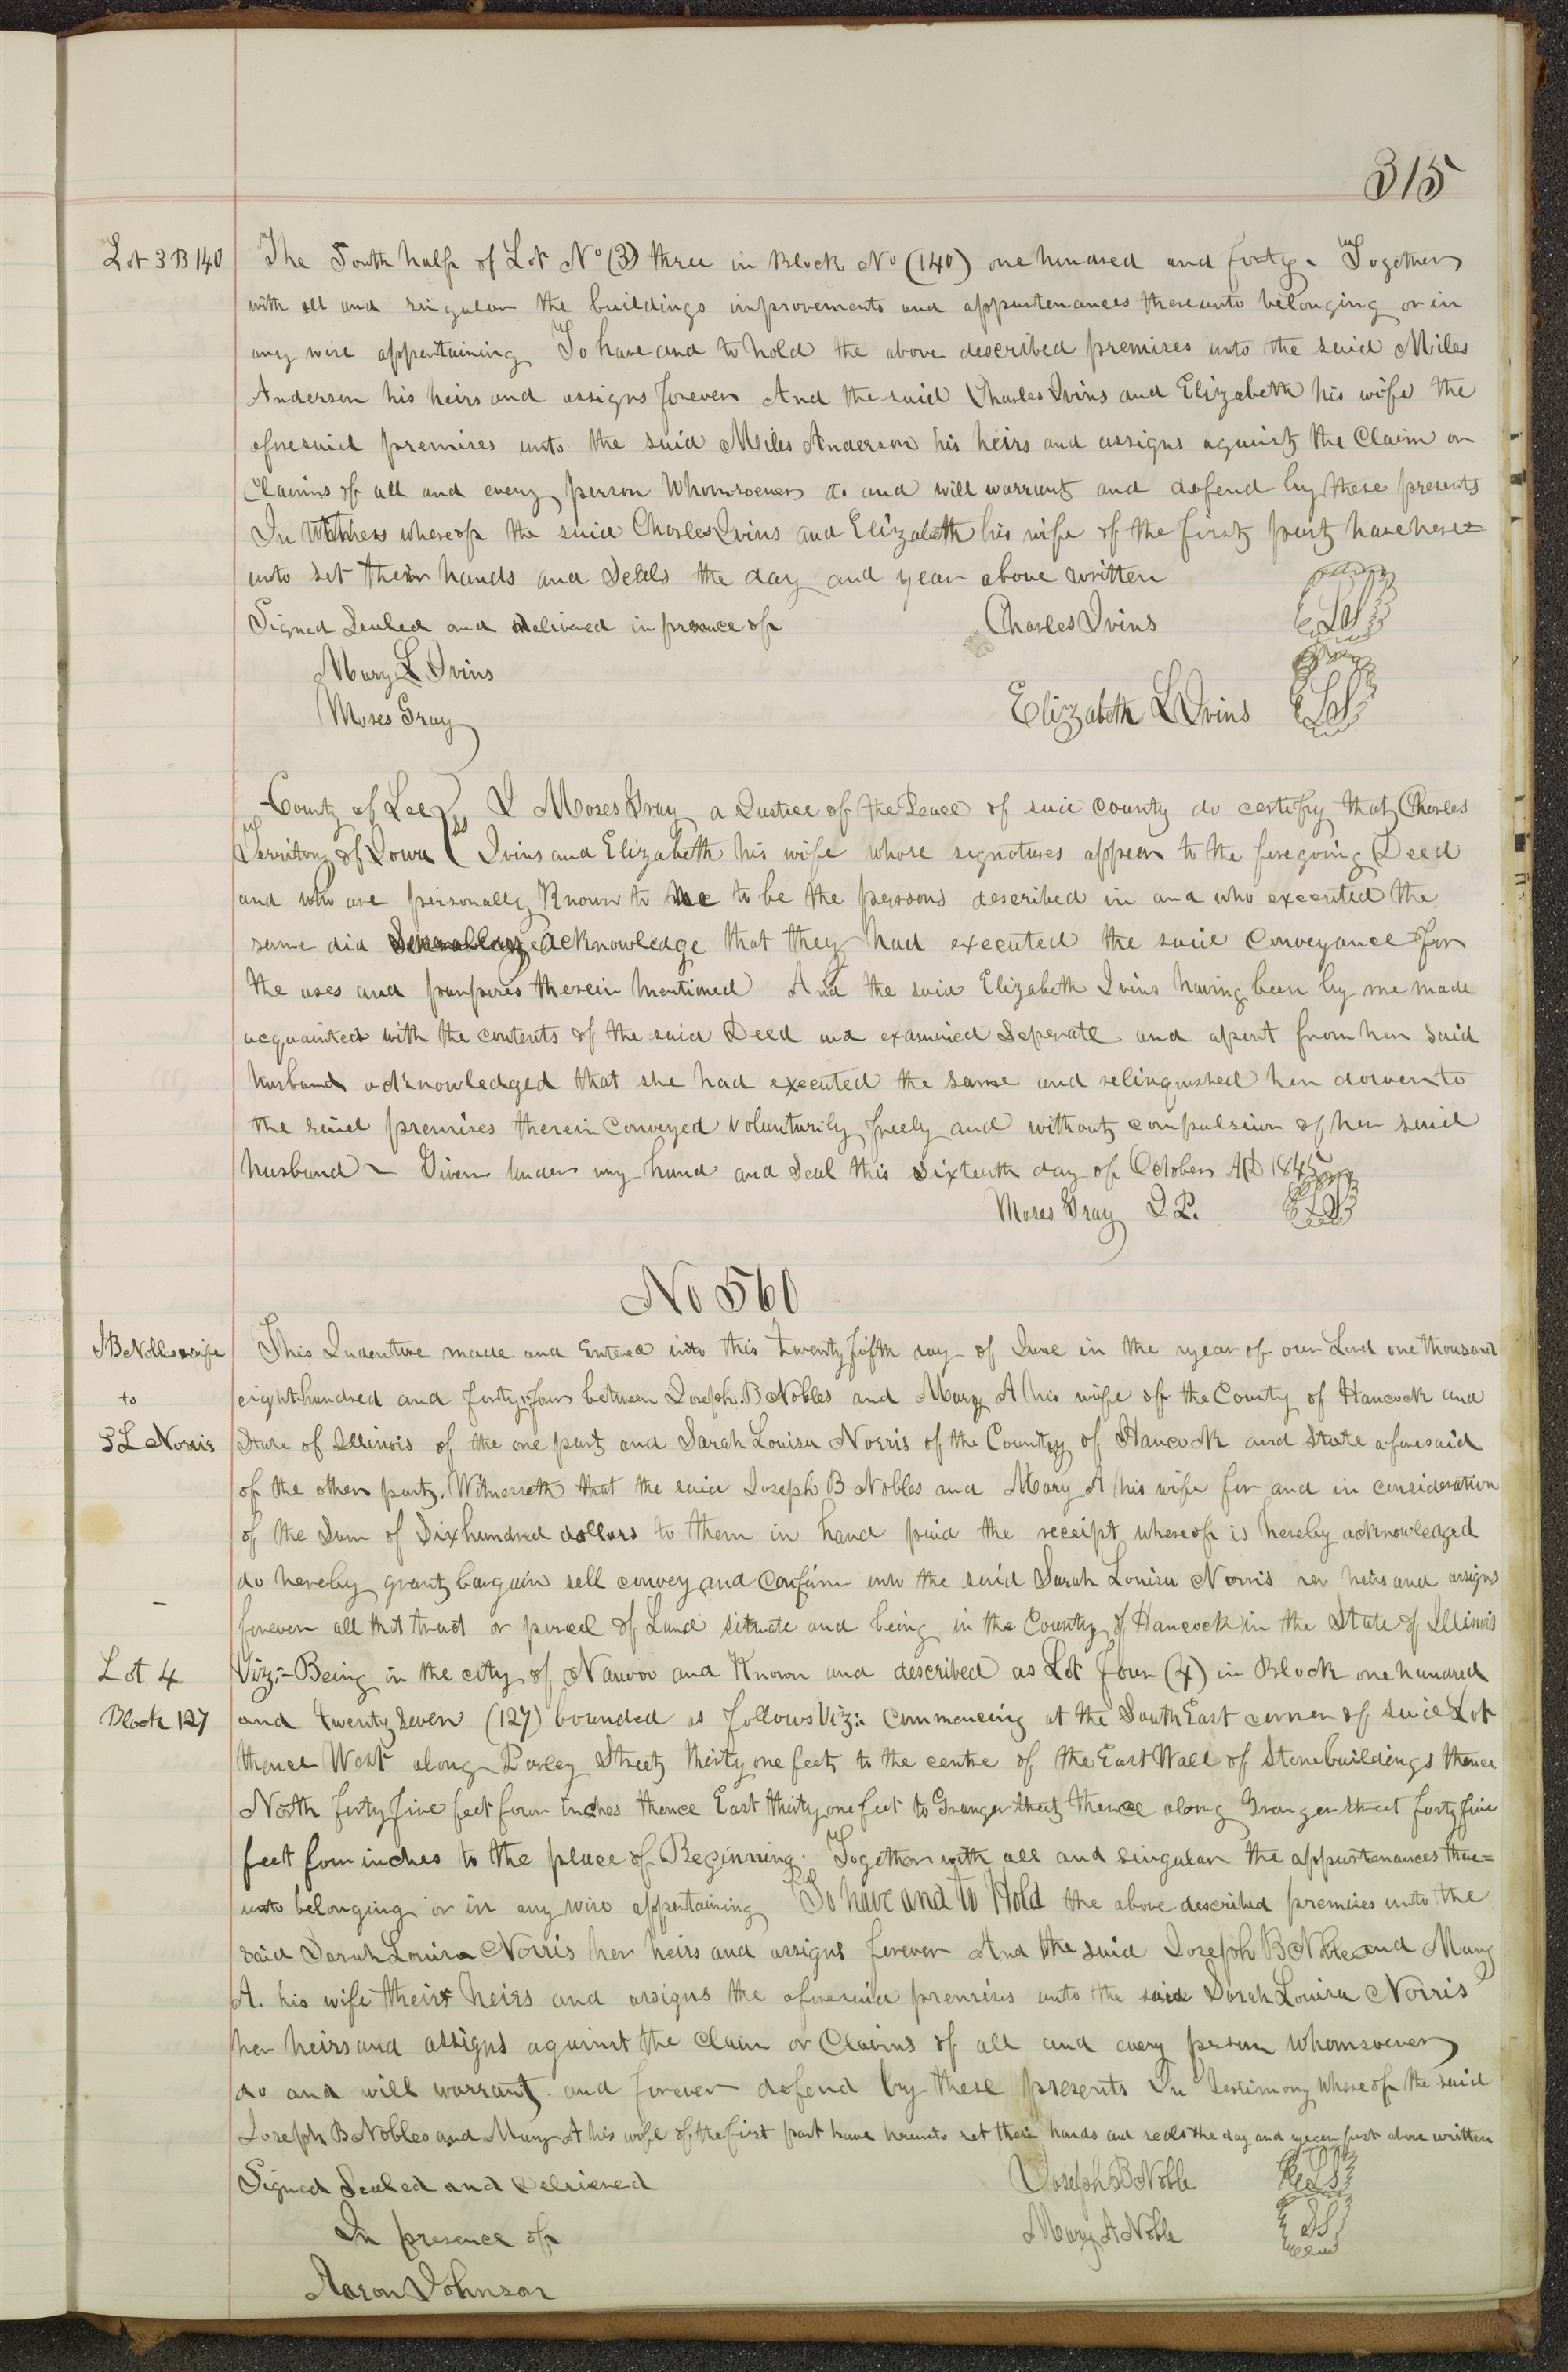 315
Lot 3 B 140
The South half of Lot No (3) three in Block No (140) one hundred and forty. Together
with all and singular the buildings improvements and appurtenances thereunto belonging or in
any wise appertaining To have and to hold the above described premises unto the said Miles
Anderson his heirs and assigns forever And the said Charles Ivins and Elizabeth his wife the
aforesaid premises unto the said Miles Anderson his heirs and assigns against the Claim or
Claims of all and every person Whomsoever do and will warrant and defend by these presents
In Witness whereof the said Charles Ivins and Elizabeth his wife of the first part have here=
unto set their hands and Seals the day and year above written
Signed Sealed and delivered in presence of Charles Ivins LS
Mary L Ivins
Moses Gray Elizabeth L Ivins LS
County of Lee I Moses Gray a Justice of the Peace of said county do certify that Charles
Territory of Iowa ss Ivins and Elizabeth his wife whose signatures appear to the foregoing Deed
and who are personally Known to me to be the persons described in and who executed the
same did acknowledge that they had executed the said Conveyance for
the uses and purposes therein mentioned And the said Elizabeth Ivins having been by me made
acquainted with the contents of the said Deed and examined Seperate and apart from her said
husband acknowledged that she had executed the same and relinquished her dower to
the said premises therein Conveyed voluntarily freely and without compulsion of her said
husband ~ Given under my hand and Seal this Sixteenth day of October AD 1845
Moses Gray J.P. LS
No 560
J B Nobles & wife
to
S L Norris
This Indenture made and Entered into this twenty fifth day of June in the year of our Lord one thousand
eight hundred and forty four between Joseph. B Nobles and Mary A his wife of the County of Hancock and
State of Illinois of the one part and Sarah Louisa Norris of the County of Hancock and State aforesaid
of the other part, Witnesseth that the said Joseph B Nobles and Mary A his wife for and in consideration
of the Sum of Six hundred dollars to them in hand paid the receipt whereof is hereby acknowledged
do hereby grant bargain sell convey and Confirm unto the said Sarah Louisa Norris her heirs and assigns
forever all that tract or parcel of Land situate and being in the County of Hancock in the State of Illinois
Lot 4
Block 127
Viz:- Being in the city of Nauvoo and Known and described as Lot four (4) in Block one hundred
and twenty Seven (127) bounded as follows Viz:- Commencing at the South East corner of said Lot
thence West along Parley Street thirty one feet to the centre of the East Wall of Stone buildings thence
North forty five feet four inches thence East thirty one feet to Granger Street thence along Granger Street forty five
feet four inches to the place of Beginning. Together with all and singular the appurtenances there=
unto belonging or in any wise appertaining To have and to Hold the above described premises unto the
said Sarah Louisa Norris her heirs and assigns forever And the said Joseph B Noble and Mary
A. his wife their heirs and assigns the aforesaid premises unto the said Sarah Louisa Norris
her heirs and assigns against the Claim or Claims of all and every person whomsoever
do and will warrant and forever defend by these presents In Testimony Whereof the said
Joseph B Nobles and Mary A his wife of the first part have hereunto set their hands and seals the day and year first above written
Signed Sealed and Delivered Joseph B Noble LS
In presence of Mary A Noble LS
Aaron Johnson